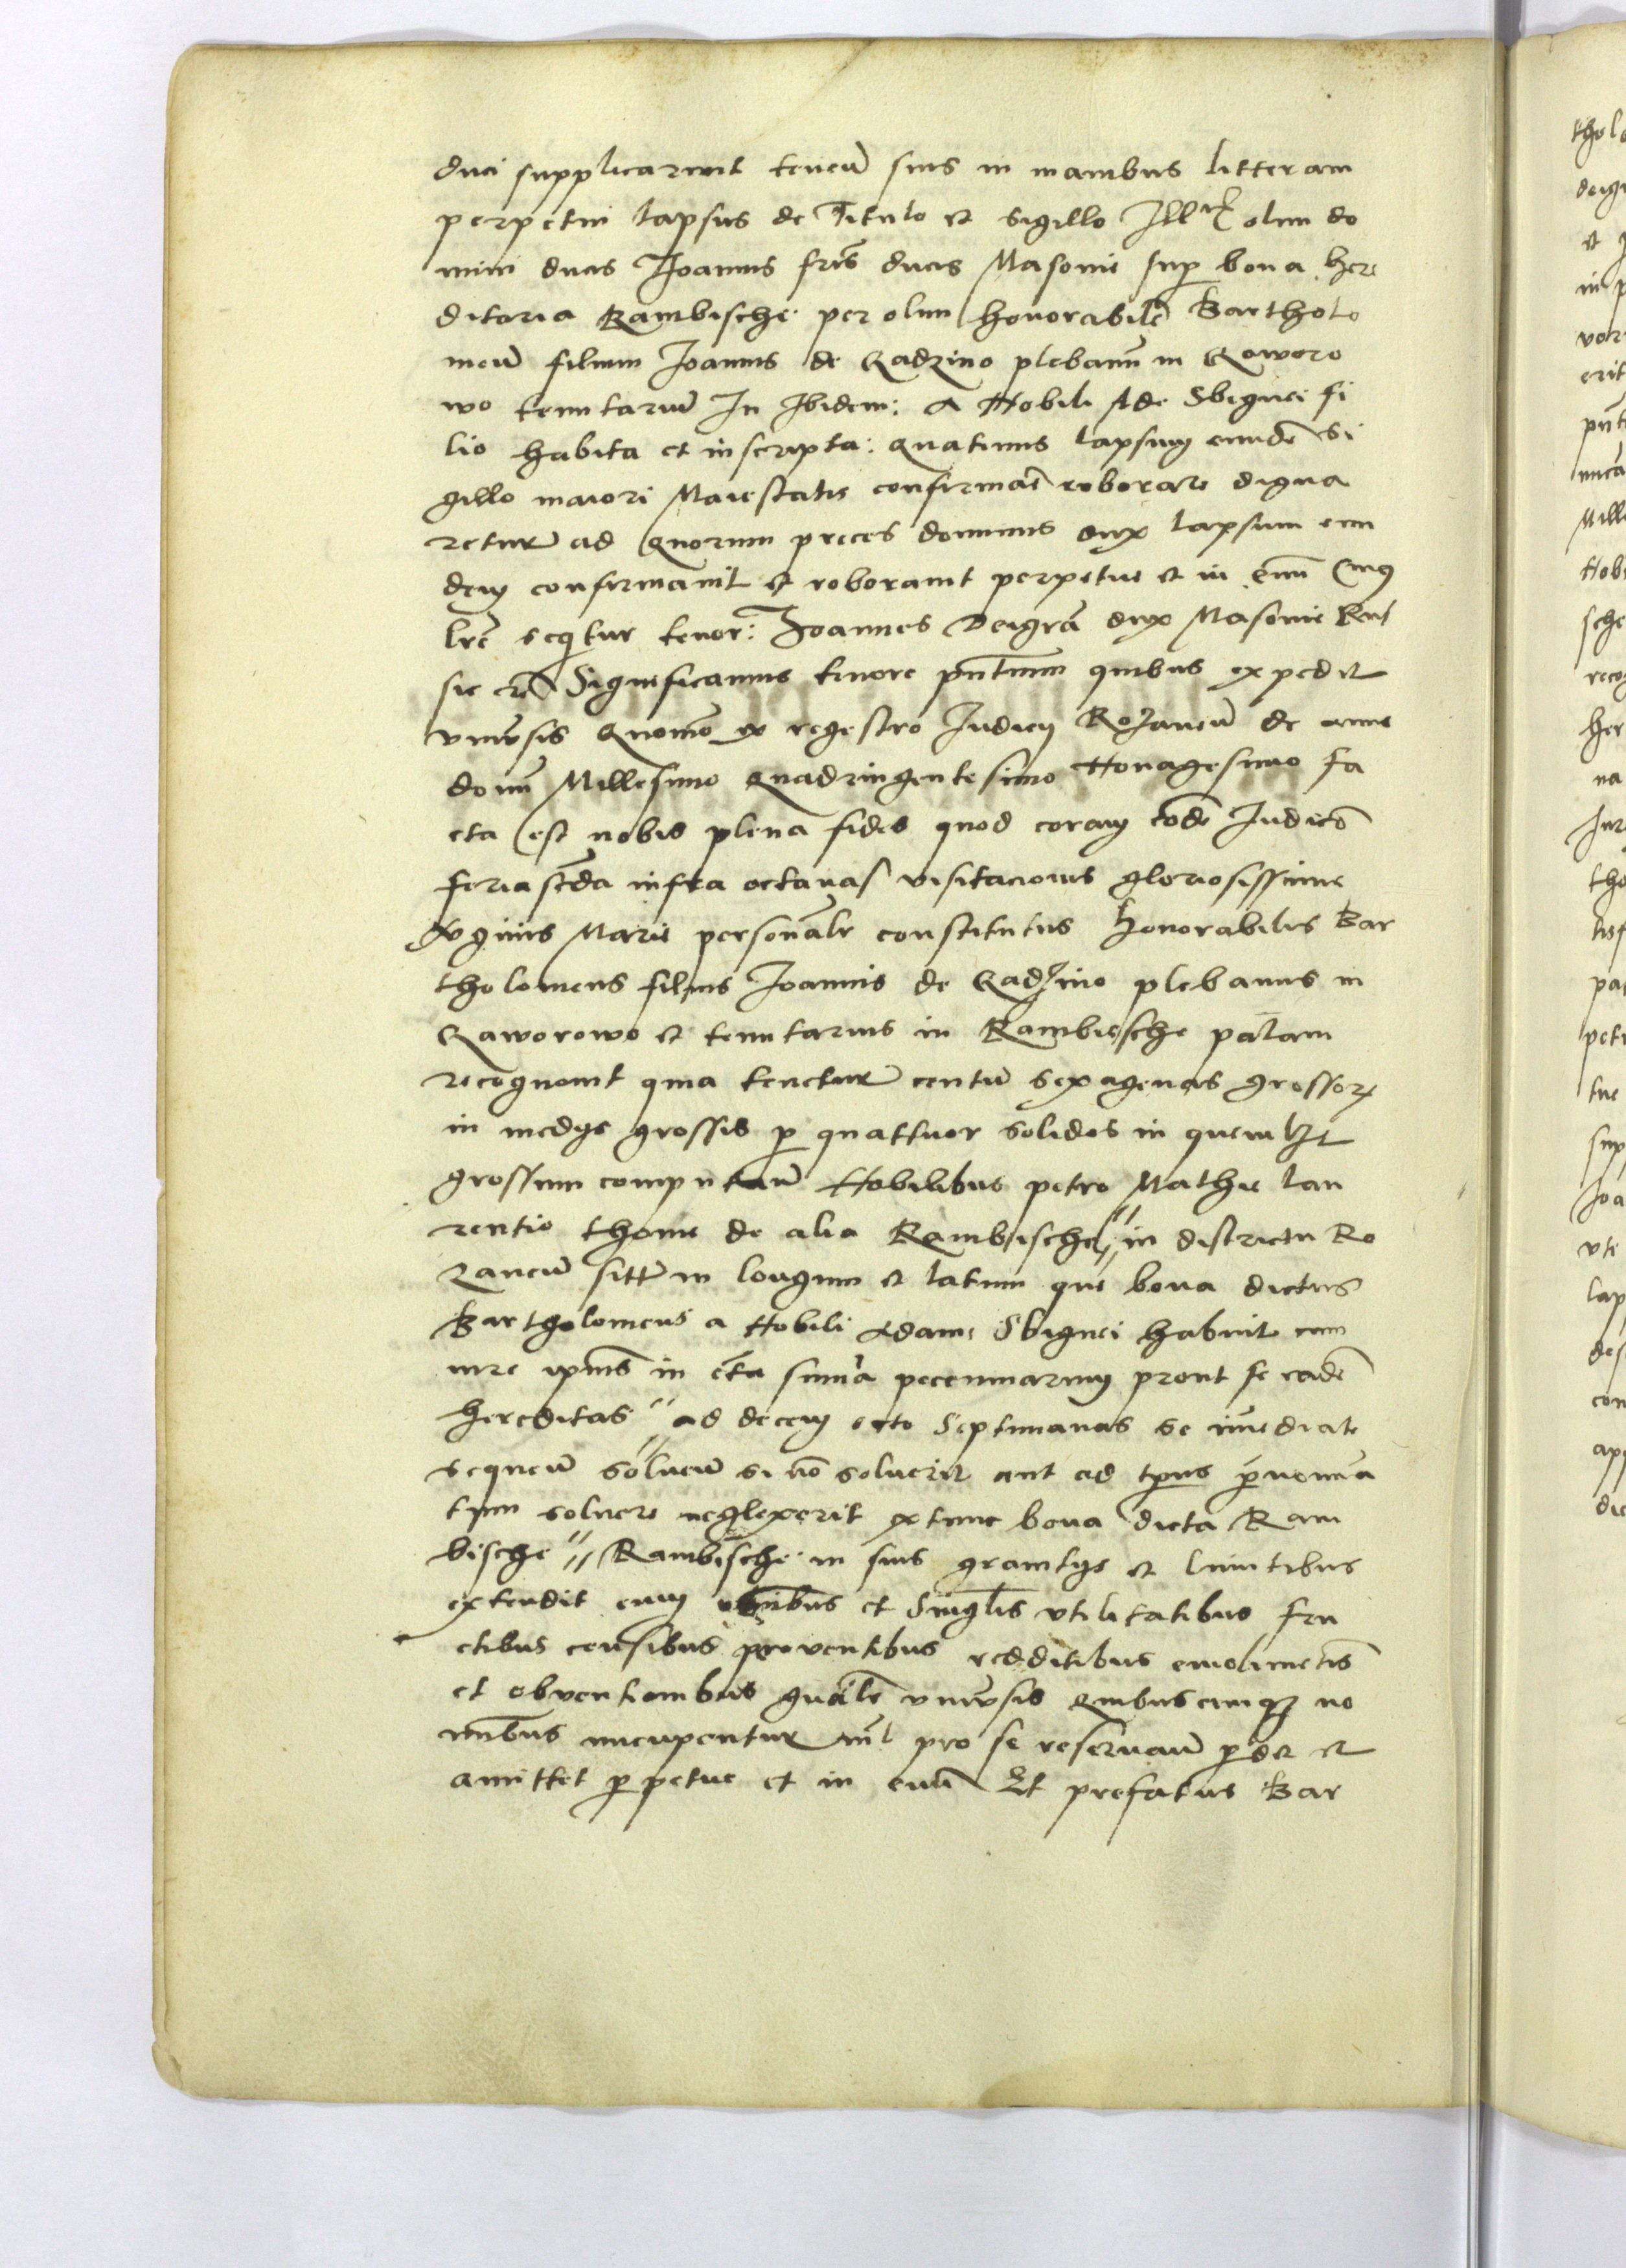 duci supplicarunt teneñ suis in manibus litteram
perpetui lapsus de Titulo et sigillo Ill olim do
mini ducis Joannis fris ducis Masovie sup bona here
ditaria Rambische per olim honorabilē Bartholo
meū filium Joannis de Gadzino plebanū in Goworo
wo tenutariū In Ibidem: A Nobili Ade Sbignei fi
lio habita et inscripta: quatinus lapsum eundē si
gillo maiori Maiestatis confirmare roborare digna
retur ad quorum preces dominus dux lapsum eun
dem confirmavit et roboravit perpetue et in evū Cuius
lrē sequitur tenor: Joannes Dei grā dux Masovie Rus
sie etc Significamus tenore pñtium quibus expedit
universis Quomō ex regestro Judicij Rozaneñ de anno
domi Millesimo Quadringentesimo Nonagesimo fa
cta est nobis plena fides quod coram eodē Judicō
feria scda infra octavas visitacionis gloriosissime
virginis Marie personalr constitutus honorabilis Bar
tholomeus filius Joannis de Gadzino plebanus in
Gaworowo et tenutarius in Rambische palam
recognovit quia tenetur centū sexagenas grossorum
in medijs grossis p quattuor solidos in quemlibet
grossum computañ Nobilibus petro Mathie lau
rentio thome de alia Rambische in districtu Ro
zaneñ sitis in longum et latum que bona dictus
Bartholomeus a Nobili Adam Sbignei habuit cum
iure ipius in cta suma pecuniarum prout se eadē
hereditas ad decem octo Septimanas se imediate
sequeñ solueñ si nō soluerit aut ad tpus
tum solvere neglexerit extunc bona dicta Ram
bische Rambische in suis granitijs et limitibus
extendit cum omibus et Singlis vtilitatibus fru
ctibus censibus proventibus redditibus emolimetis
et obventionibus gnalr vnivsis quibuscumque no
minibus nuncupentur nil pro se reservañ pdet et
amittet ppetue et in evū Et prefatus Bar